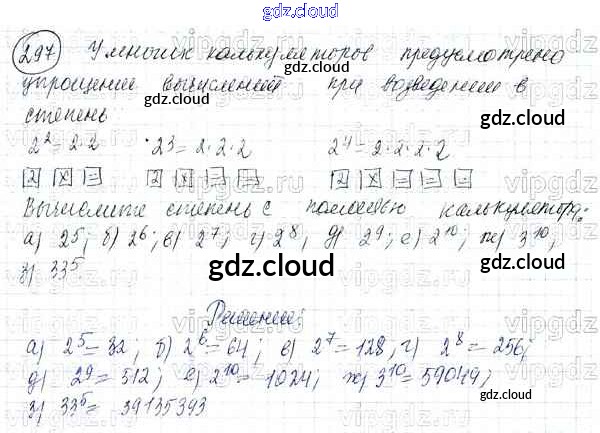 gdz.cloud
297 У многих калькуляторов предусмотрено
gdz.cloud
упрощение вычислений при возведении в
степень
gdz.cloud
2²=2·2 2³=2·2·2 2⁴=2·2·2·2
2 x = 2 x = = 2 x = = =
Вычислите степень с помощью калькулятора:
а) 2⁵; б) 2⁶; в) 2⁷; г) 2⁸, д) 2⁹; е) 2¹⁰; ж) 3¹⁰;
з) 33⁵
gdz.cloud
Решение:
а) 2⁵=32; б) 2⁶=64; в) 2⁷=128, г) 2⁸=256;
д) 2⁹=512; е) 2¹⁰=1024; ж) 3¹⁰=59049;
з) 33⁵= 39135393
gdz.cloud